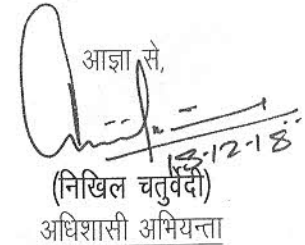 आज्ञा से,
18-12-18
(निखिल चतुर्वेदी)
अधिशासी अभियन्ता